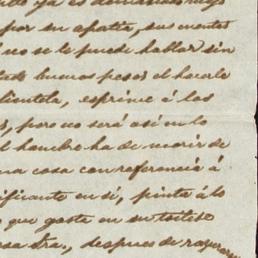 ya es demasiado
por su apatia, sus
no se le puede hablar sin
buenos pesos el hacerle
clientela, esprime á los
pero no será asi en lo
el hambre ha de morir de
una cosa con referencia á
en sí, pinta á lo
que gaste en su
Sra., despues de